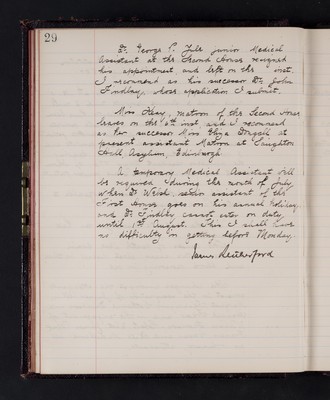 29
Dr. George P. Till junior Medical
Assistant at the Second House resigned
his appointment and left on the inst.
I recommend as his successor Dr. John
Findlay, whose application I submit.
Miss Hay, matron of the Second House
leaves on the 6th inst. and I recommend
as her successor Miss Eliza at
present assistant Matron at Saughton
Hall Asylum, Edinburgh.
A temporary Medical Assistant will
be required during the month of July
when Dr Welsh, senior assistant of the
First House goes on his annual holiday
and Dr Findlay cannot enter on duty
until 1st August. This I shall have
no difficulty in getting before Monday.
James Rutherford